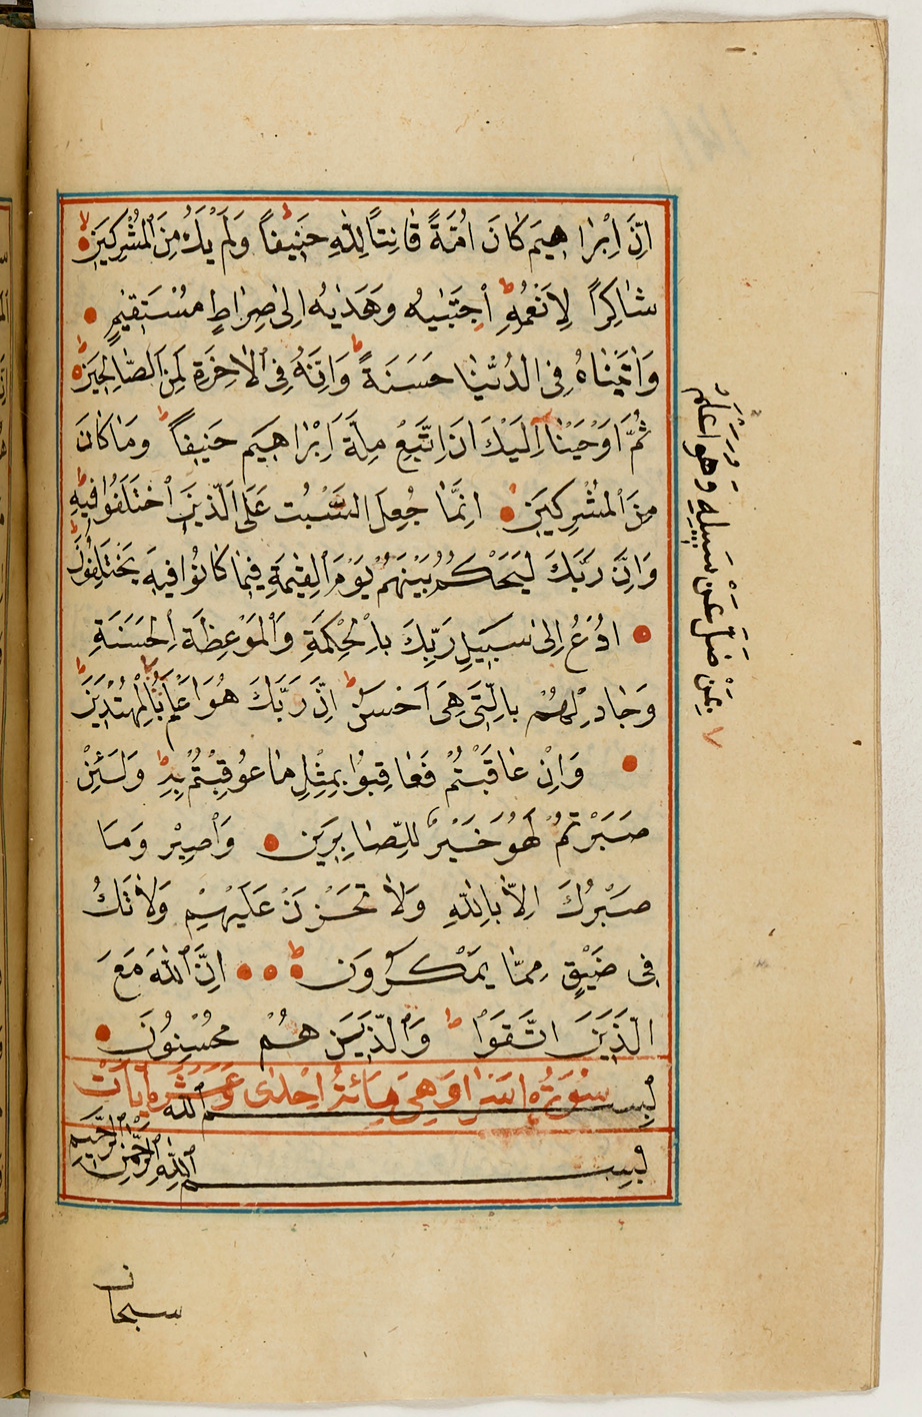 اِنَّ اِبْرٰاهِيمَ كَانَ اُمَّةً قَانِتاً لِلّٰهِ حَنِيفاً وَلَمْ يَكُ مِنَ الْمُشْرِكِينَ
شَاكِراً لِاَنْعُمِهِ اِجْتَبٰيهُ وَهَدٰيهُ اِلٰى صِرَاطٍ مُسْتَقِيمٍ
وَاٰتَيْنَاهُ فِى الدُّنْيَا حَسَنَةً وَاِنَّهُ فِى الْاٰخِرَةِ لَمِنَ الصَّالِحِينَ
ثُمَّ اَوْحَيْنَا اِلَيْكَ اَنِ اتَّبِعْ مِلَّةَ اِبْرٰاهِيمَ حَنِيفاً وَمَا كَانَ
مِنَ الْمُشْرِكِينَ اِنَّمَا جُعِلَ السَّبْتُ عَلَى الَّذِينَ اخْتَلَفُوا فِيهِ
وَاِنَّ رَبَّكَ لَيَحْكُمُ بَيْنَهُمْ يَوْمَ الْقِيٰمَةِ فِيمَا كَانُوا فِيهِ يَخْتَلِفُونَ
اُدْعُ اِلٰى سَبِيلِ رَبِّكَ بِالْحِكْمَةِ وَالْمَوْعِظَةِ الْحَسَنَةِ
وَجَادِلْهُمْ بِالَّتِى هِىَ اَحْسَنُ اِنَّ رَبَّكَ هُوَ اَعْلَمُ بِالْمُهْتَدِينَ
وَاِنْ عَاقَبْتُمْ فَعَاقِبُوا بِمِثْلِ مَا عُوقِبْتُمْ بِهِ وَلَئِنْ
صَبَرْتُمْ لَهُوَ خَيْرٌ لِلصَّابِرِينَ وَاصْبِرْ وَمَا
صَبْرُكَ اِلَّا بِاللّٰهِ وَلَا تَحْزَنْ عَلَيْهِمْ وَلَا تَكُ
فِى ضَيْقٍ مِمَّا يَمْكُرُونَ اِنَّ اللّٰهَ مَعَ
الَّذِينَ اتَّقَوْا وَالَّذِينَ هُمْ مُحْسِنُونَ
سُورَةُ اسرا وَهِىَ مِائَةُ اِحْدٰى وَعَشَرَ اٰيَات
بِسْمِ اللّٰهِ
بِسْمِ اللّٰهِ الرَّحْمٰنِ الرَّحِيمِ
سبحان
بِمَنْ ضَلَّ عَنْ سَبِيلِهِ وَهُوَ اَعْلَمُ